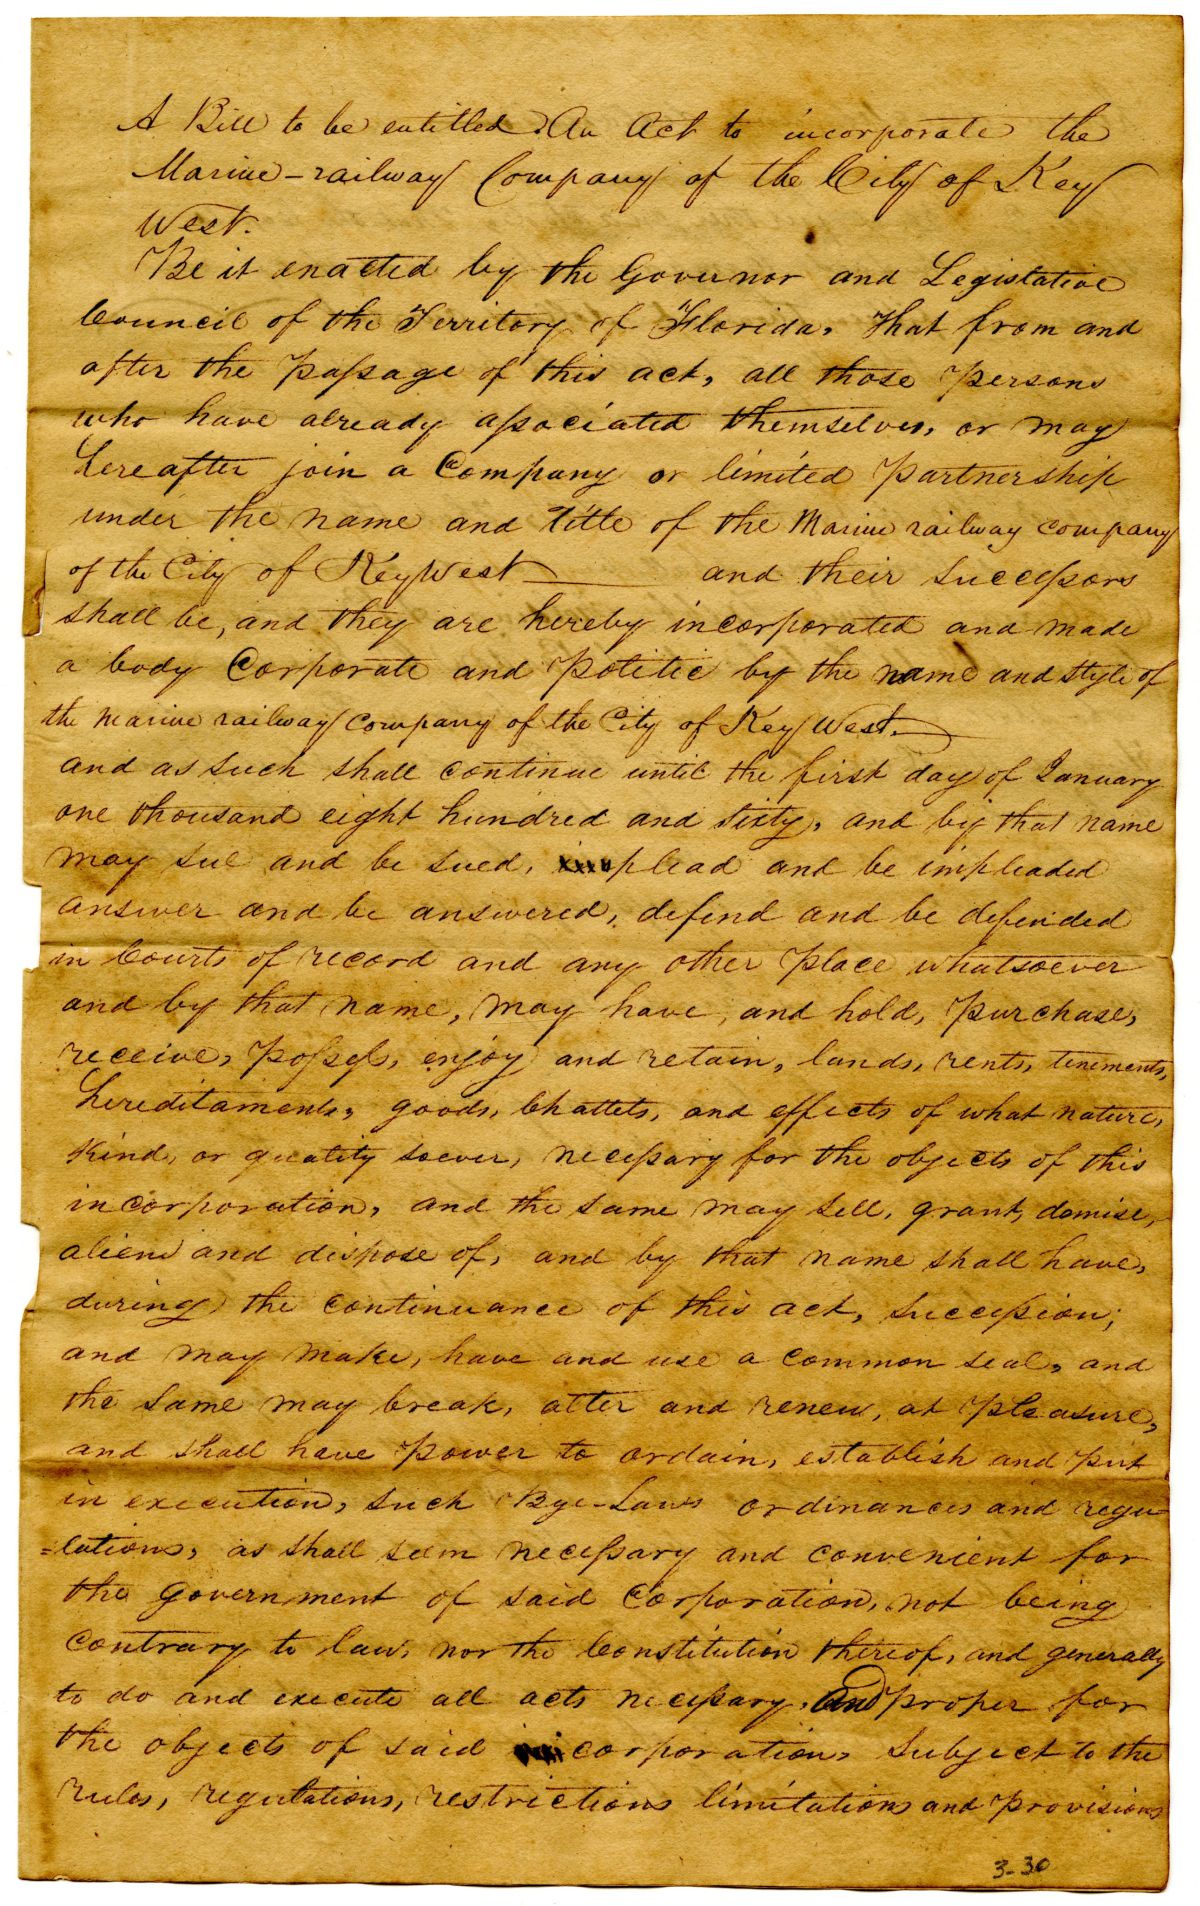 A Bill to be entitled. An Act to incorporate the
Marine-railway Company of the City of Key
West.
Be it enacted by the Governor and Legislative
Council of the Territory of Florida, That from and
after the passage of this act, all those persons
who have already associated themselves, or may
hereafter join a Company or limited partnership
under the name and title of the Marine railway company
of the City of Key West and their successors
shall be, and they are hereby incorporated and made
a body Corporate and politic by the name and style of
the marine railway company of the City of Key West.
and as such shall continue until the first day of January
one thousand eight hundred and sixty, and by that name
may sue and be sued, plead and be impleaded
answer and be answered, defend and be defended
in Courts of record and any other place whatsoever
and by that name, may have, and hold, purchase,
receive, possess, enjoy and retain, lands, rents, tenements,
hereditaments, goods, Chattels, and effects of what nature,
kind, or quality soever, necessary for the objects of this
incorporation, and the same may sell, grant, demise,
alien and dispose of, and by that name shall have,
during the continuance of this act, succession;
and may make, have and use a common seal, and
the same may break, alter and renew, at pleasure,
and shall have power to ordain, establish and put
in execution, such Bye-Laws ordinances and regu-
=lations, as shall seem necessary and convenient for
the government of said Corporation, not being
contrary to law, nor the Constitution thereof, and generally
to do and execute all acts necessary, and proper for
the objects of said corporation, subject to the
rules, regulations, restrictions limitations and provisions
3-30